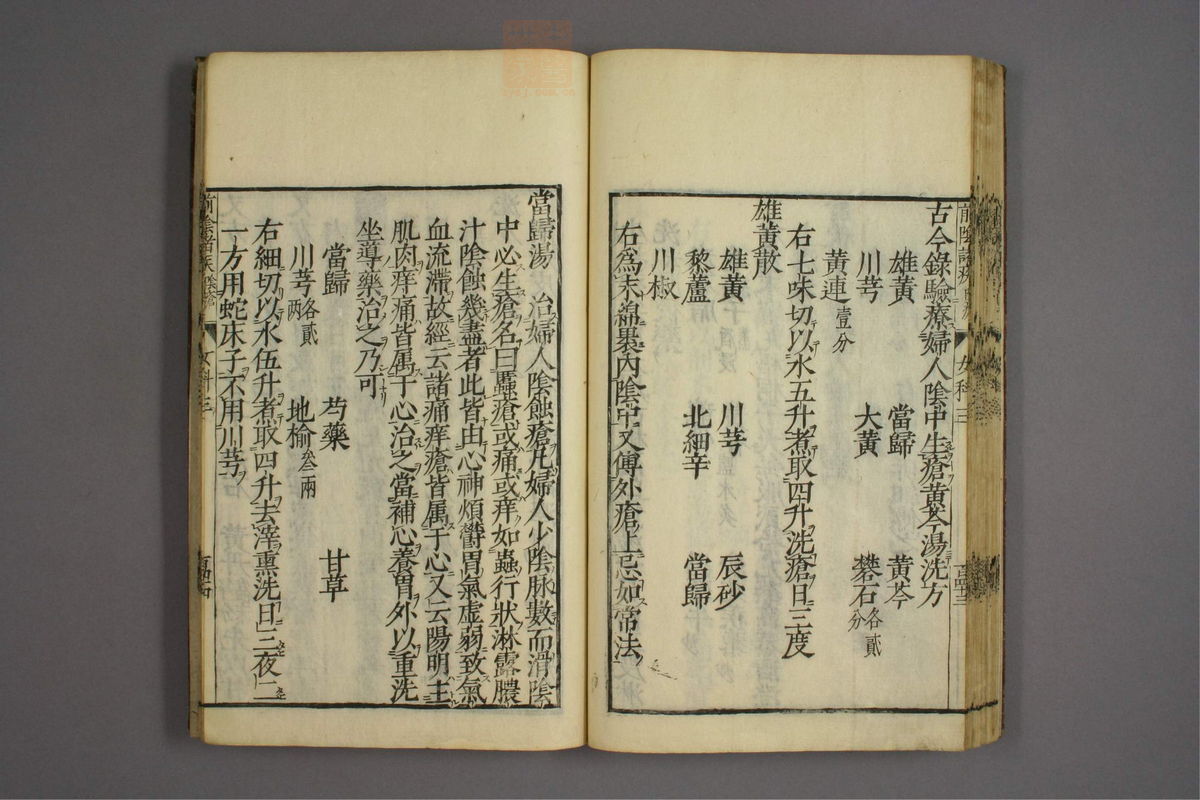 古今錄驗療婦人陰中生瘡黃芩湯洗方
雄黃 當歸 黃芩
川芎 大黃 礬石各貳分
黃連壹分
右七味切以水五升煮取四升洗瘡日三度
雄黃散
雄黃 川芎 辰砂
藜蘆 北細辛 當歸
川椒
右為末綿裹內陰中又傅外瘡上忌如常法
當歸湯 治婦人陰蝕瘡凡婦人少陰脉數而滑陰
中必生瘡名曰䘌瘡或痛或痒如蟲行狀淋露膿
汁陰蝕幾盡者此皆由心神煩鬱胃氣虛弱致氣
血流滯故經云諸痛痒瘡皆属于心又云陽明主
肌肉痒痛皆属于心治之當補心養胃外以熏洗
坐導藥治之乃可
當歸 芍藥 甘草
川芎各貳两 地榆叁兩
右細切以水伍升煮取四升去滓熏洗日三夜二
一方用蛇床子不用川芎
女科三